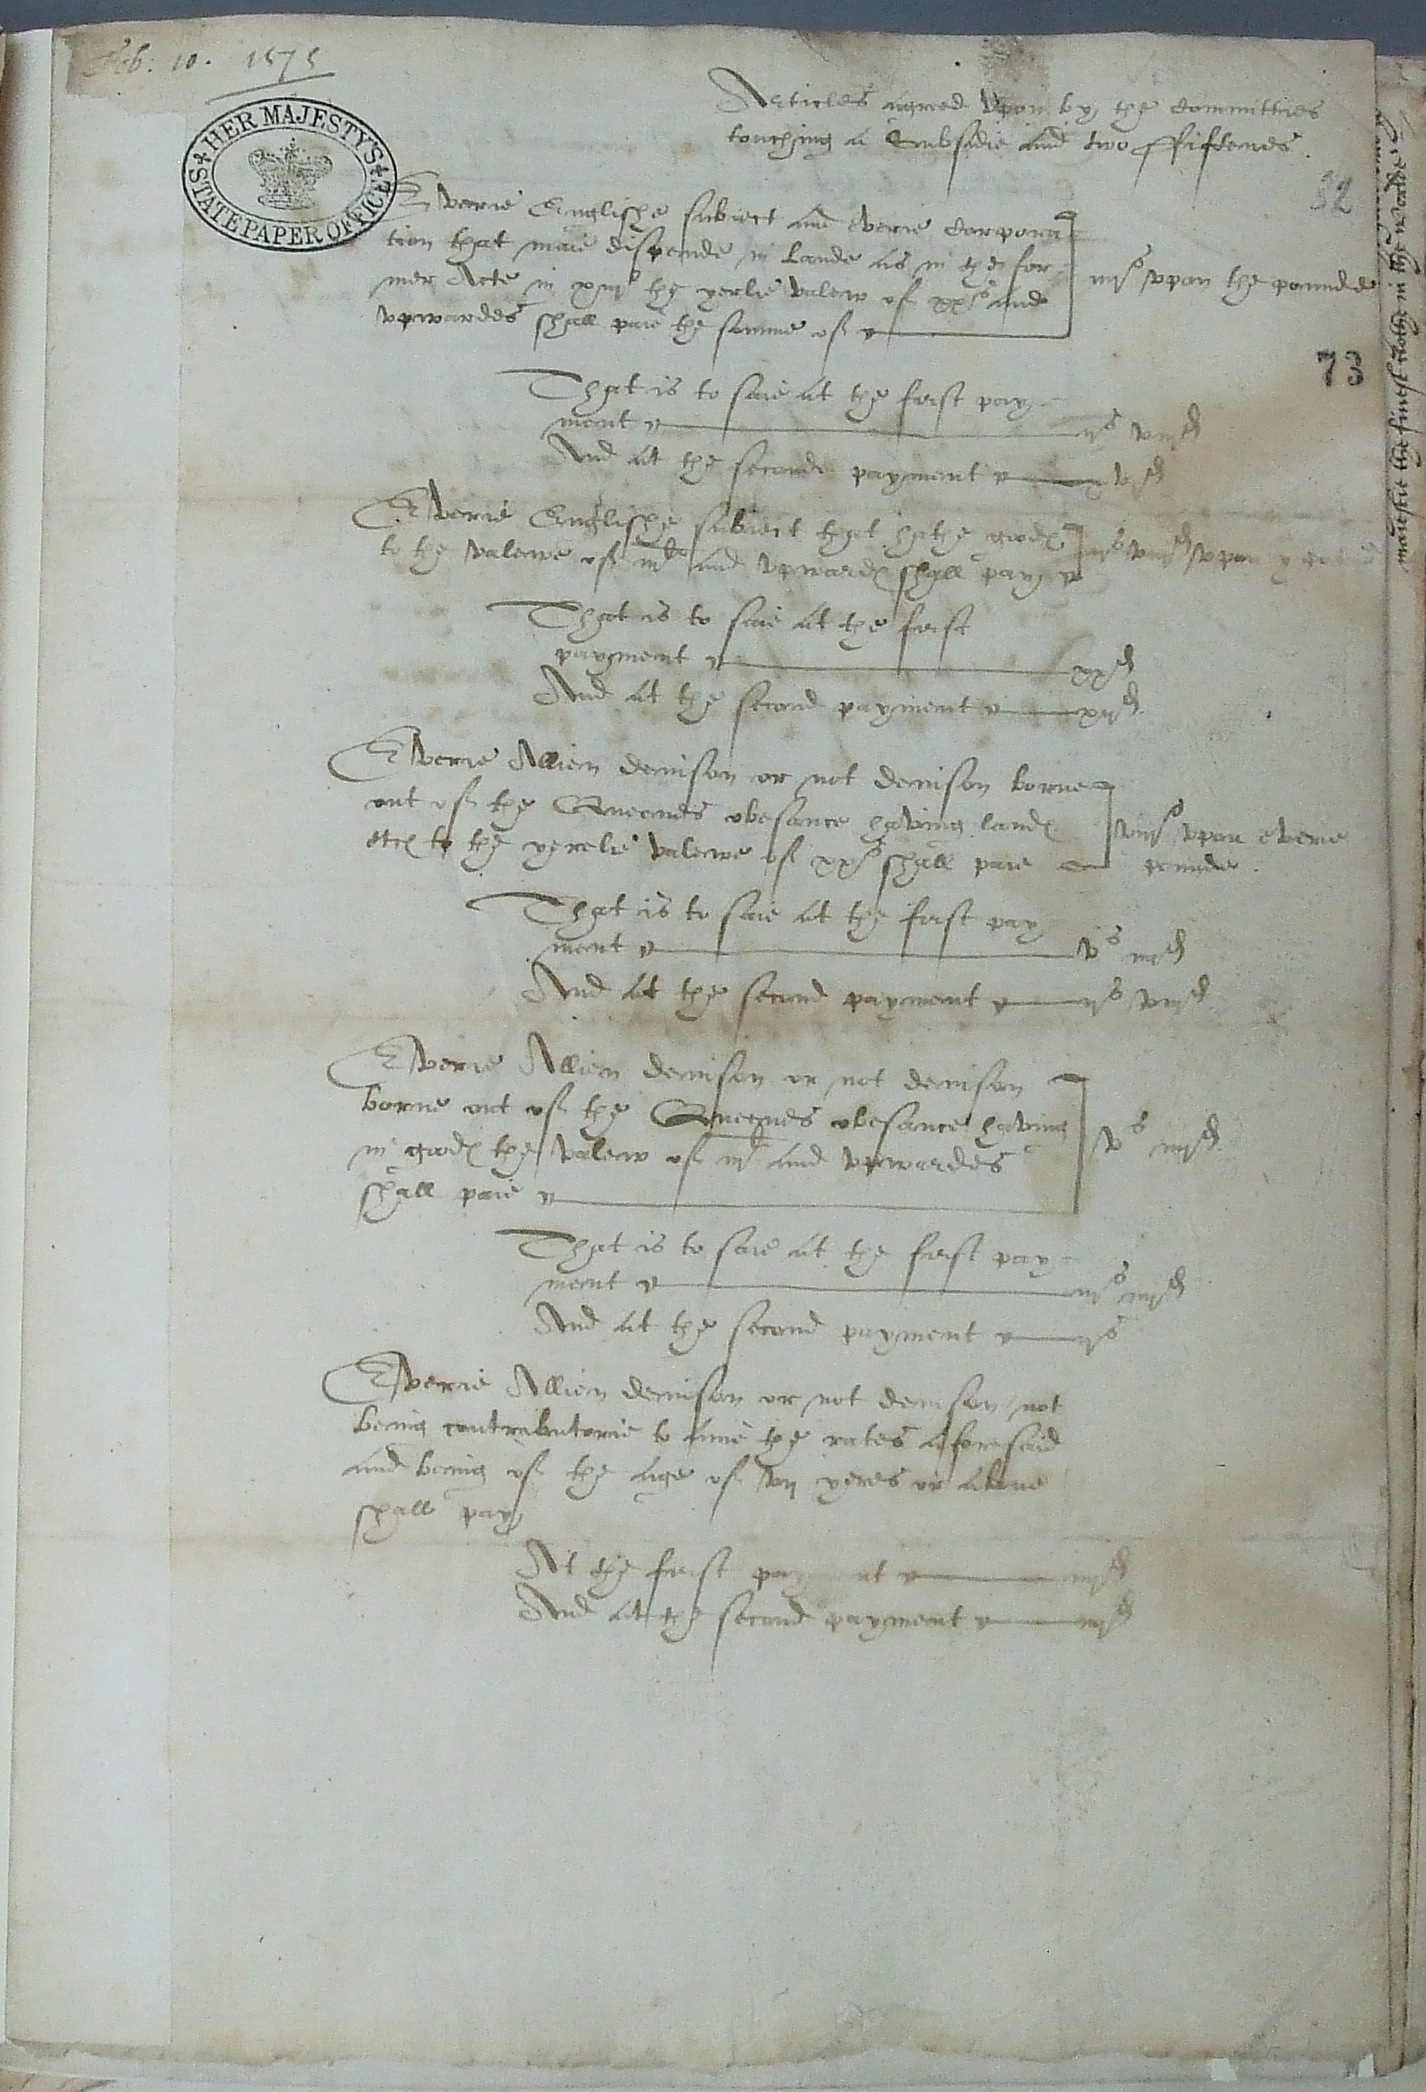 Feb: 10. 1575
HER MAJESTY'S
STATE PAPER OFFICE
Articles agreed vpon by the Committies
touching a Subsidie and two ffiftenes.
32
Everie Englishe subiect and everie Corpora
tion that maie dispende in lande as in the for
mer Acte in xiijo the yerlie valew of xxs and
vpwardes shall paie the summe of
iiijs vpon the pounde
73
That is to saie at the first pay
ment ijs viijd
And at the seconde payment xvjd
Everie Englishe subiect that hathe goodes
to the valewe of iijli and vpwardes shall pay
ijs viijd vpon
That is to saie at the first
payment xxd
And at the second payment xijd.
Everie Allien denison or not denison borne
out of the Queenes obesance having landes
etc to the yerelie valewe of xxs shall paie
viijs vpon everie
pounde.
That is to saie at the first pay
ment vs iiijd
And at the second payment ijs viijd
Everie Allien denison or not denison
borne out of the Queenes obesance having
in goodes the valew of iijli and vpwardes
shall paie
vs iiijd.
That is to saie at the first pay
ment iijs iiijd
And at the second payment ijs
Everie Allien denison or not denison not
being contributorie to anie the rates aforesaid
and being of the age of vij yeres or above
shall pay
At the first payment iiijd
And at the second payment iiijd
maiestie the finest clothe in the worlde